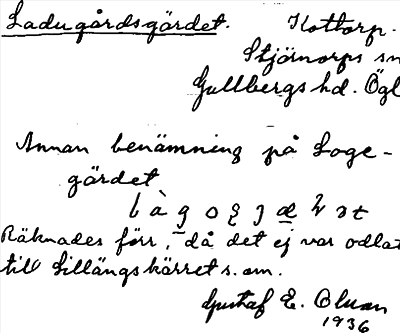 Ladugårdsgärdet. Kottorp.
Stjörnorps sn
Gullbergs hd. Ögl
Annan benämning på Loge-
gärdet
Räknades förr, då det ej var odlat
till Lillängskärret s. om.
Gustaf E. Olman
1936